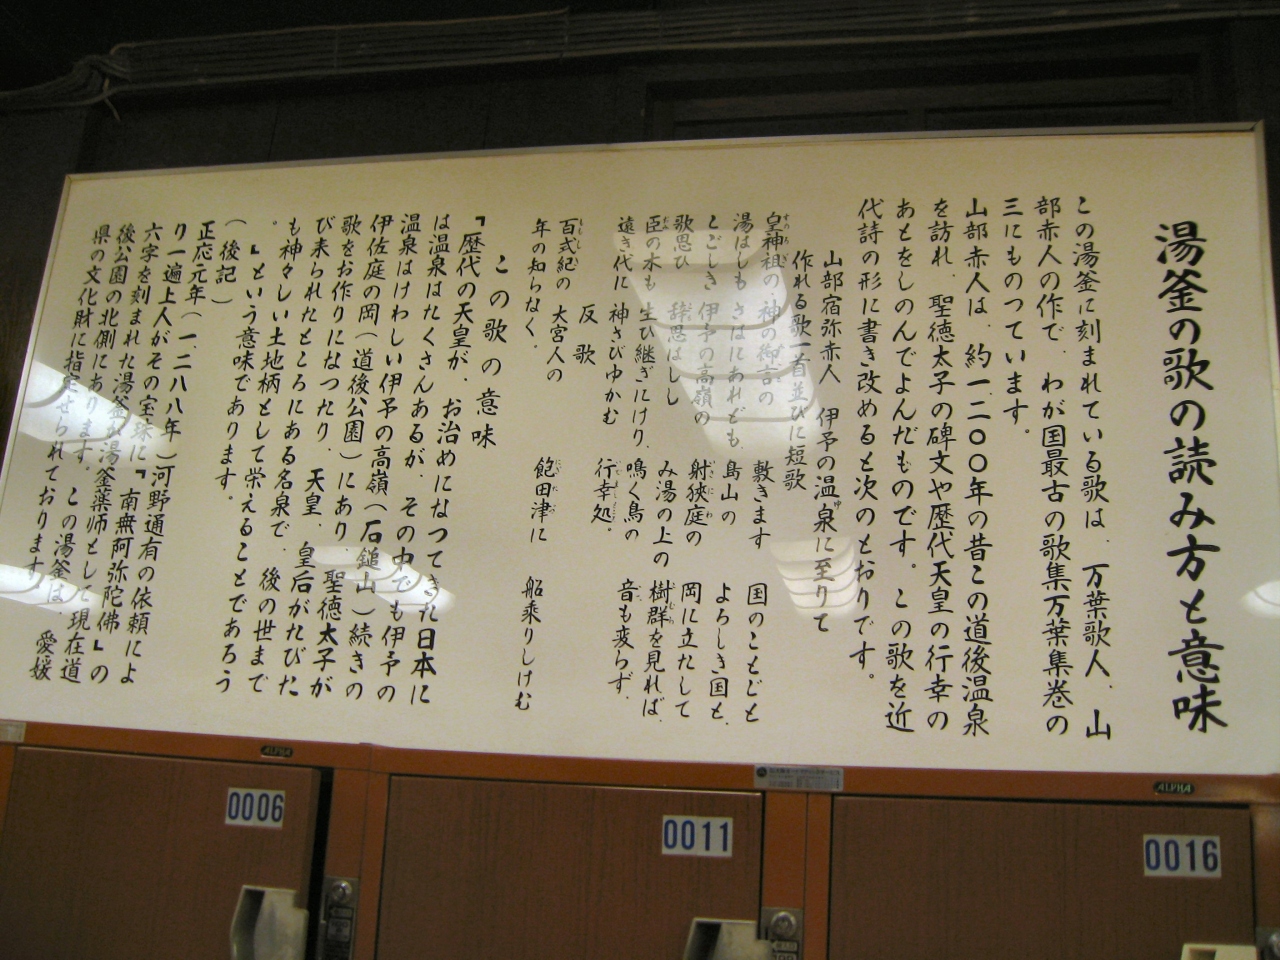 湯釜の歌の読み方と意味
この湯釜に刻まれている歌は、万葉歌人、山
部赤人の作で、わが国最古の歌集万葉集巻の
三にものつています。
山部赤人は、約一二〇〇年の昔この道後温泉
を訪れ、聖徳太子の碑文や歴代天皇の行幸の
あとをしのんでよんだものです。この歌を近
代詩の形に書き改めると次のとおりです。
山部宿弥赤人 伊予の温泉に至りて
作れる歌一首並びに短歌
皇神祖の 神の御言の 敷きます 国のことごと
湯はしも さはにあれども、島山の よろしき国と、
こごしき 伊予の高嶺の 射狹庭の 岡に立たして
歌思ひ 辞思はしし み湯の上の 樹群を見れば、
臣の木も 生ひ継ぎにけり、鳴く鳥の 音も変らず、
遠き代に 神さびゆかむ 行幸処。
反歌
百式紀の 大宮人の 飽田津に 船乗りしけむ
年の知らなく、
この歌の意味
「歴代の天皇が、お治めになつてきた日本に
は温泉はたくさんあるが、その中でも伊予の
温泉はけわしい伊予の高嶺(石鎚山)続きの
伊佐庭の岡(道後公園)にあり、聖徳太子が
歌をお作りになつたり、天皇、皇后がたびた
び来られたところにある名泉で、後の世まで
も神々しい土地柄として栄えることであろう
。」という意味であります。
(後記)
正応元年(一二八八年)河野通有の依頼によ
り一遍上人がその宝珠に「南無阿弥陀佛」の
六字を刻まれた湯釜が湯釜薬師として現在道
後公園の北側にあります。この湯釜は、愛媛
県の文化財に指定せられております。
ALPHA
ALPHA
0006
0011
0016